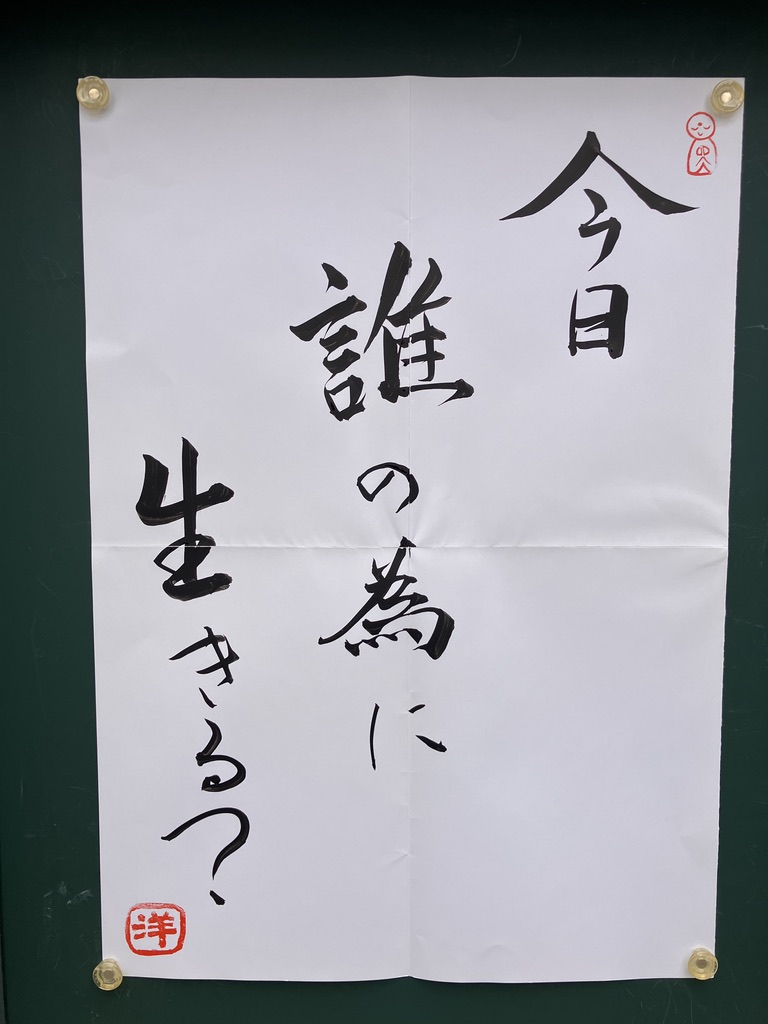 今日
誰の為に
生きる?
洋